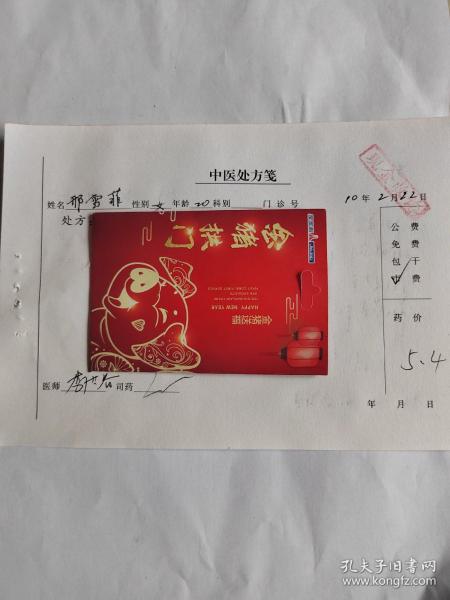 中医处方笺
姓名 邢雪菲 性别 女 年龄 20 科别 门诊号 10年2月22日
处方
公费
免费
包干
自费
药价
5.4
医师 司药
年月日
金猪拱门
金猪送福
HAPPY NEW YEAR
孔夫子旧书网
www.kongfz.com